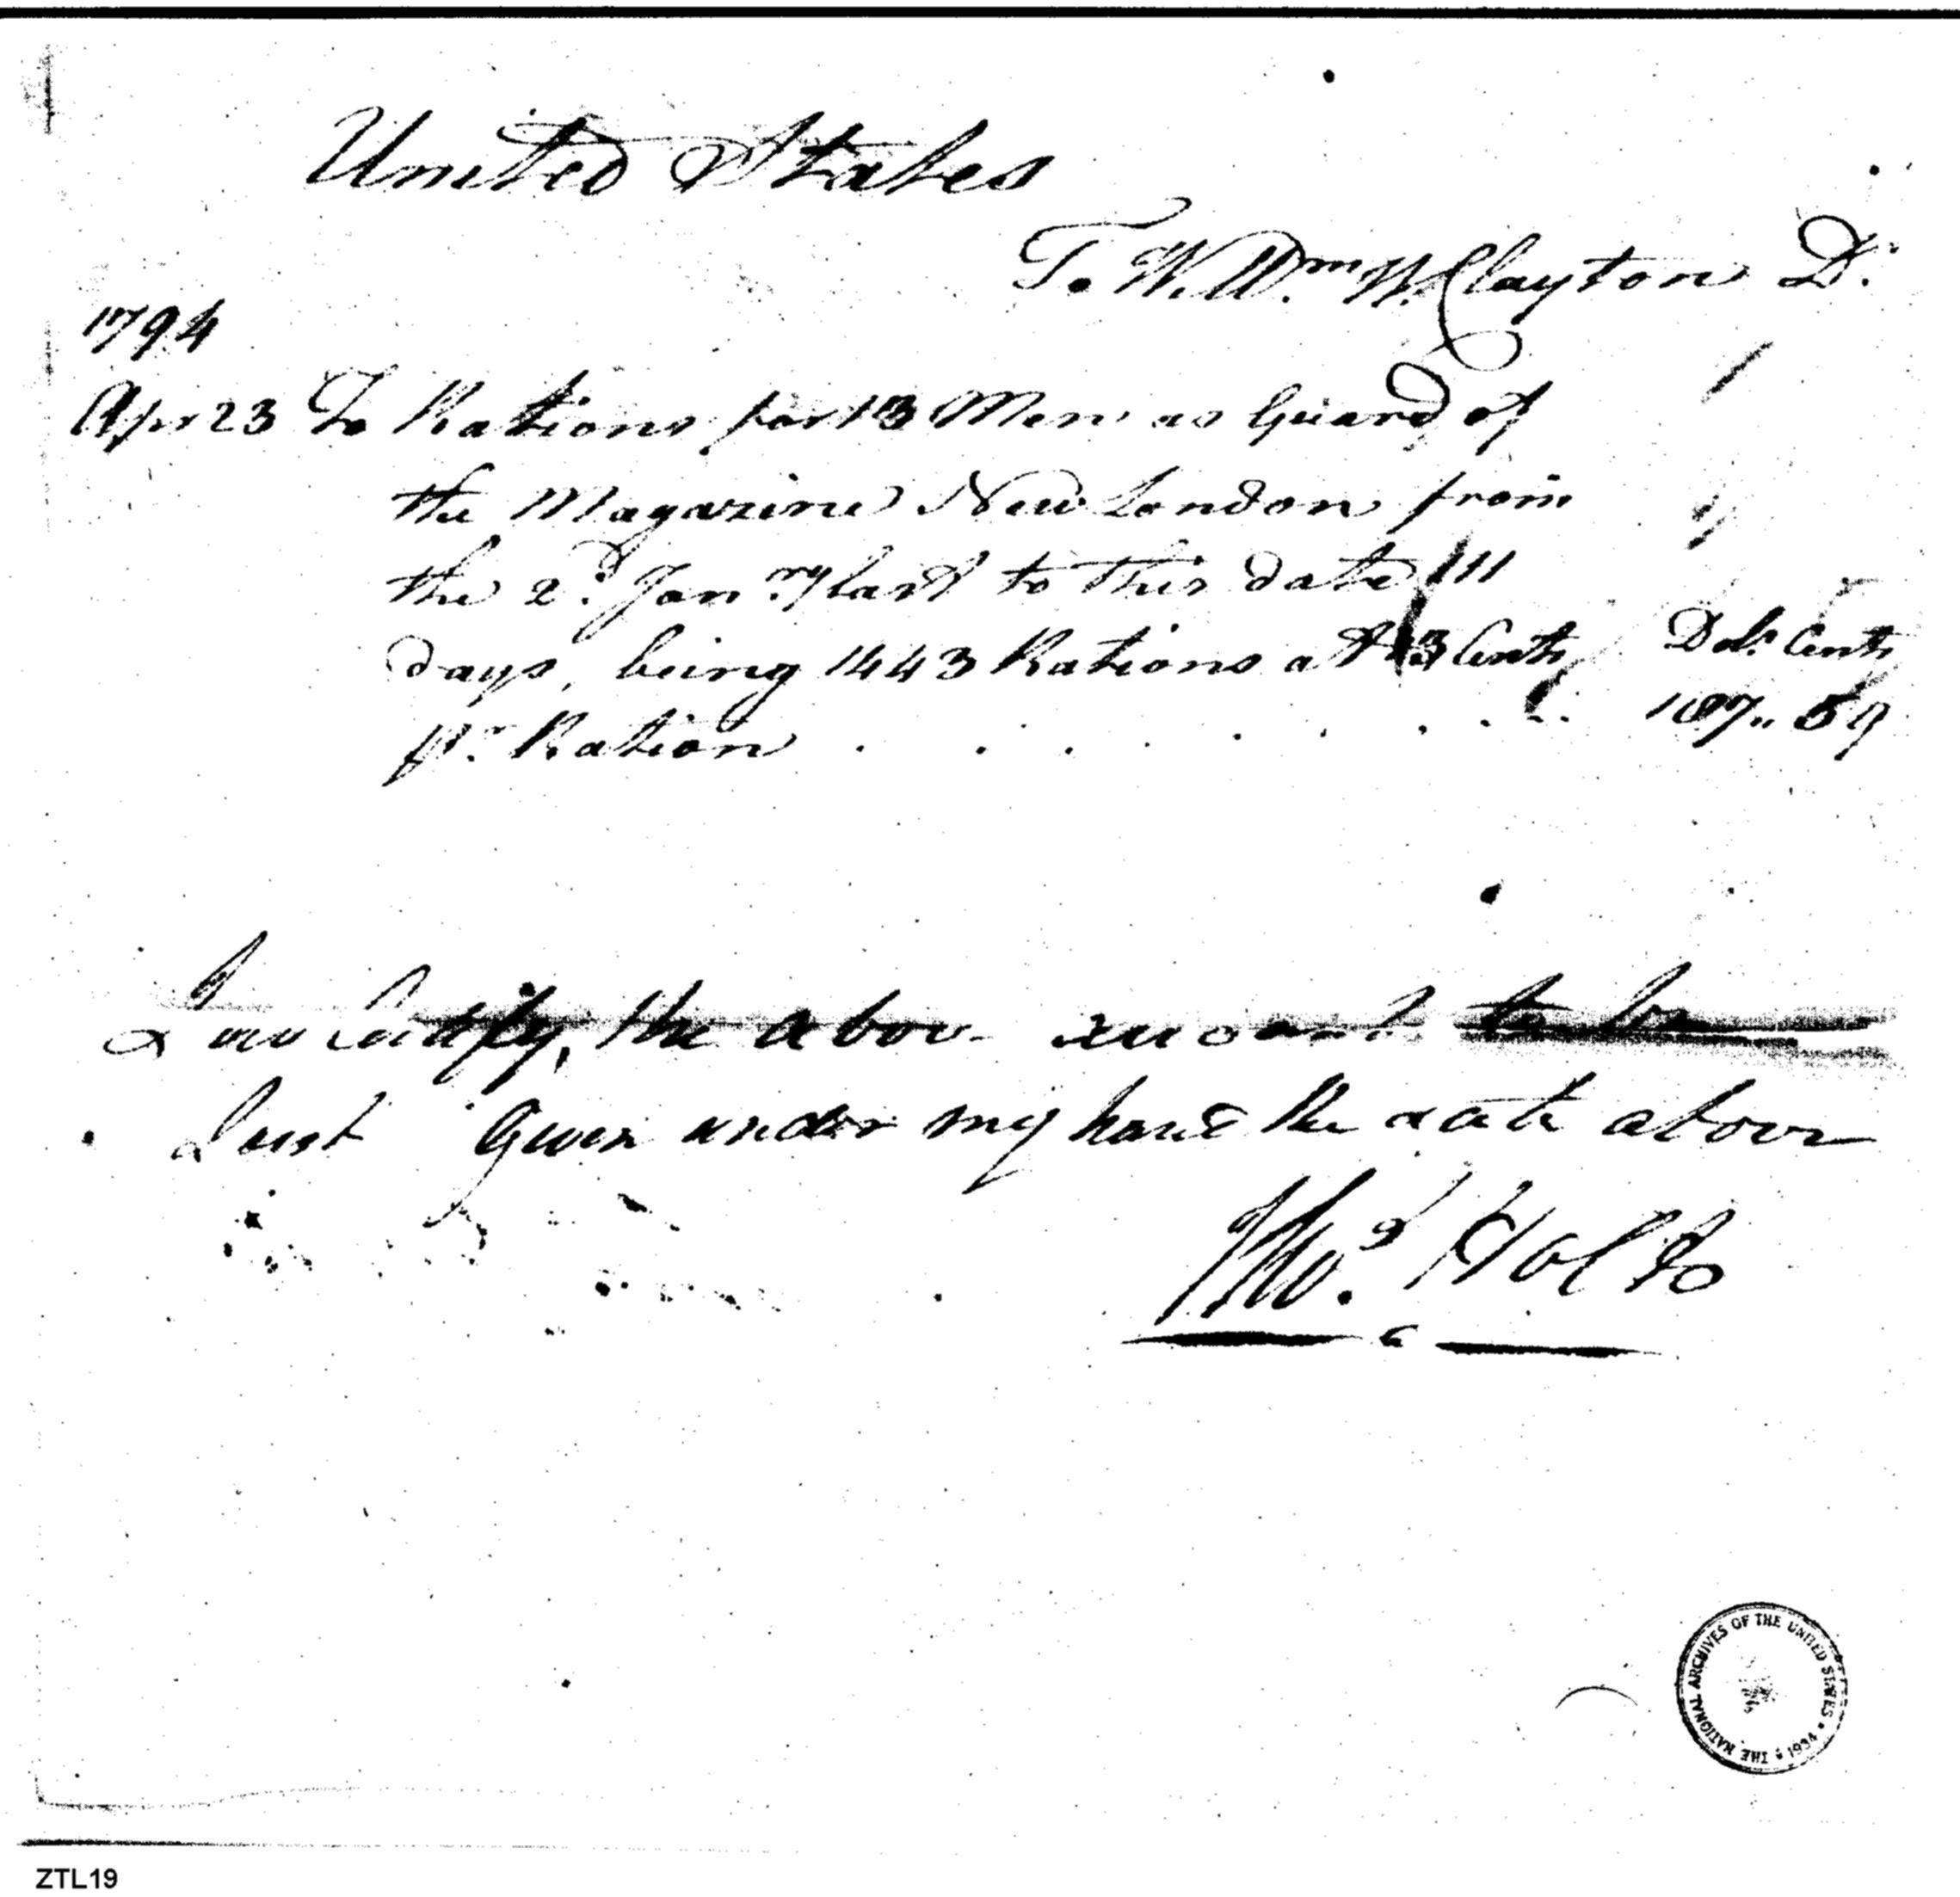 United States
To W. Wm. W. Clayton Dr.
1794
Apr 23 To Rations for 13 Men as Guard of
the Magazine New London from
the 2d. Janry last to this date 111
days, being 1443 Rations at 13 Cents Dols Cents
pr. Ration . . . . . . . . 187.. 59
I do Certify, the above account to be
Just Given under my hand the date above
Thos. Holt
THE NATIONAL ARCHIVES OF THE UNITED STATES • 1934
ZTL19